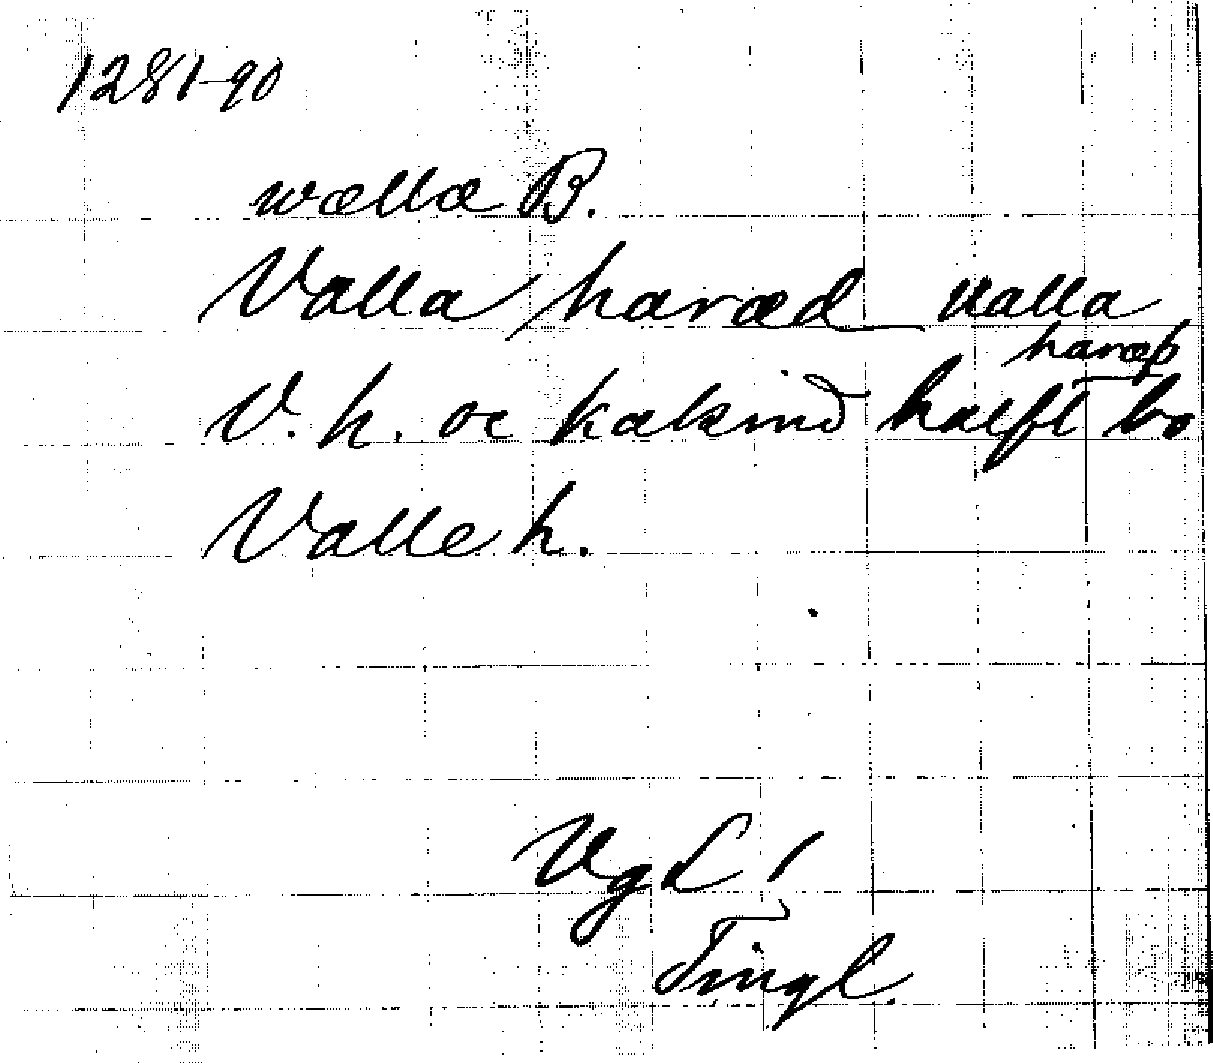 1281-90
wælla B.
Valla haræd Ualla
haræþ
V. h. oc kakind halft bo
Valle h.
VgL I
Tingl.